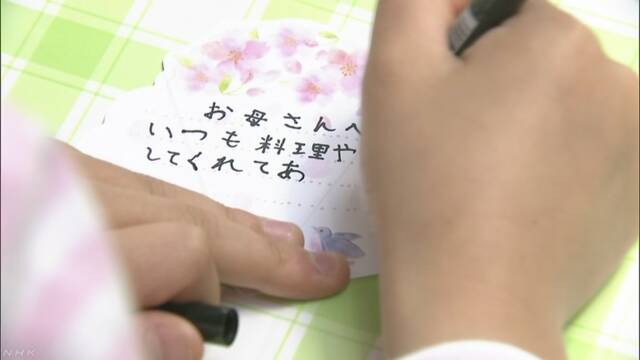 お母さんへ
いつも料理や
してくれてあ
NHK